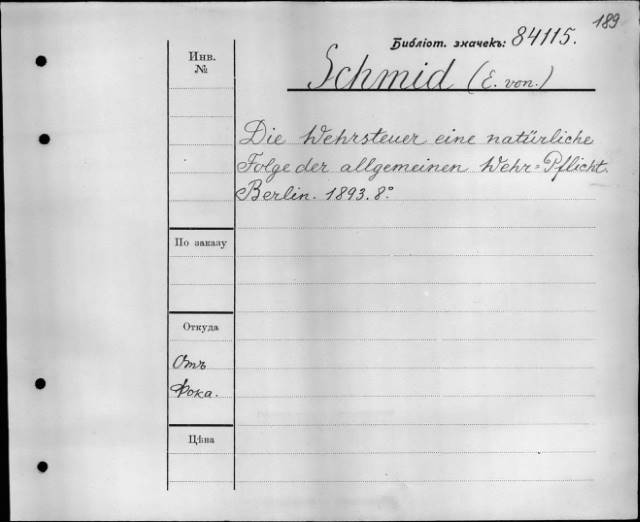 189
Библіот. значекъ: 84115.
Инв.
№
Schmid (E. von.)
Die Wehrsteuer eine natürliche
Folge der allgemeinen Wehr=Pflicht.
Berlin. 1893. 8°
По заказу
Откуда
Отъ
Фока.
Цѣна